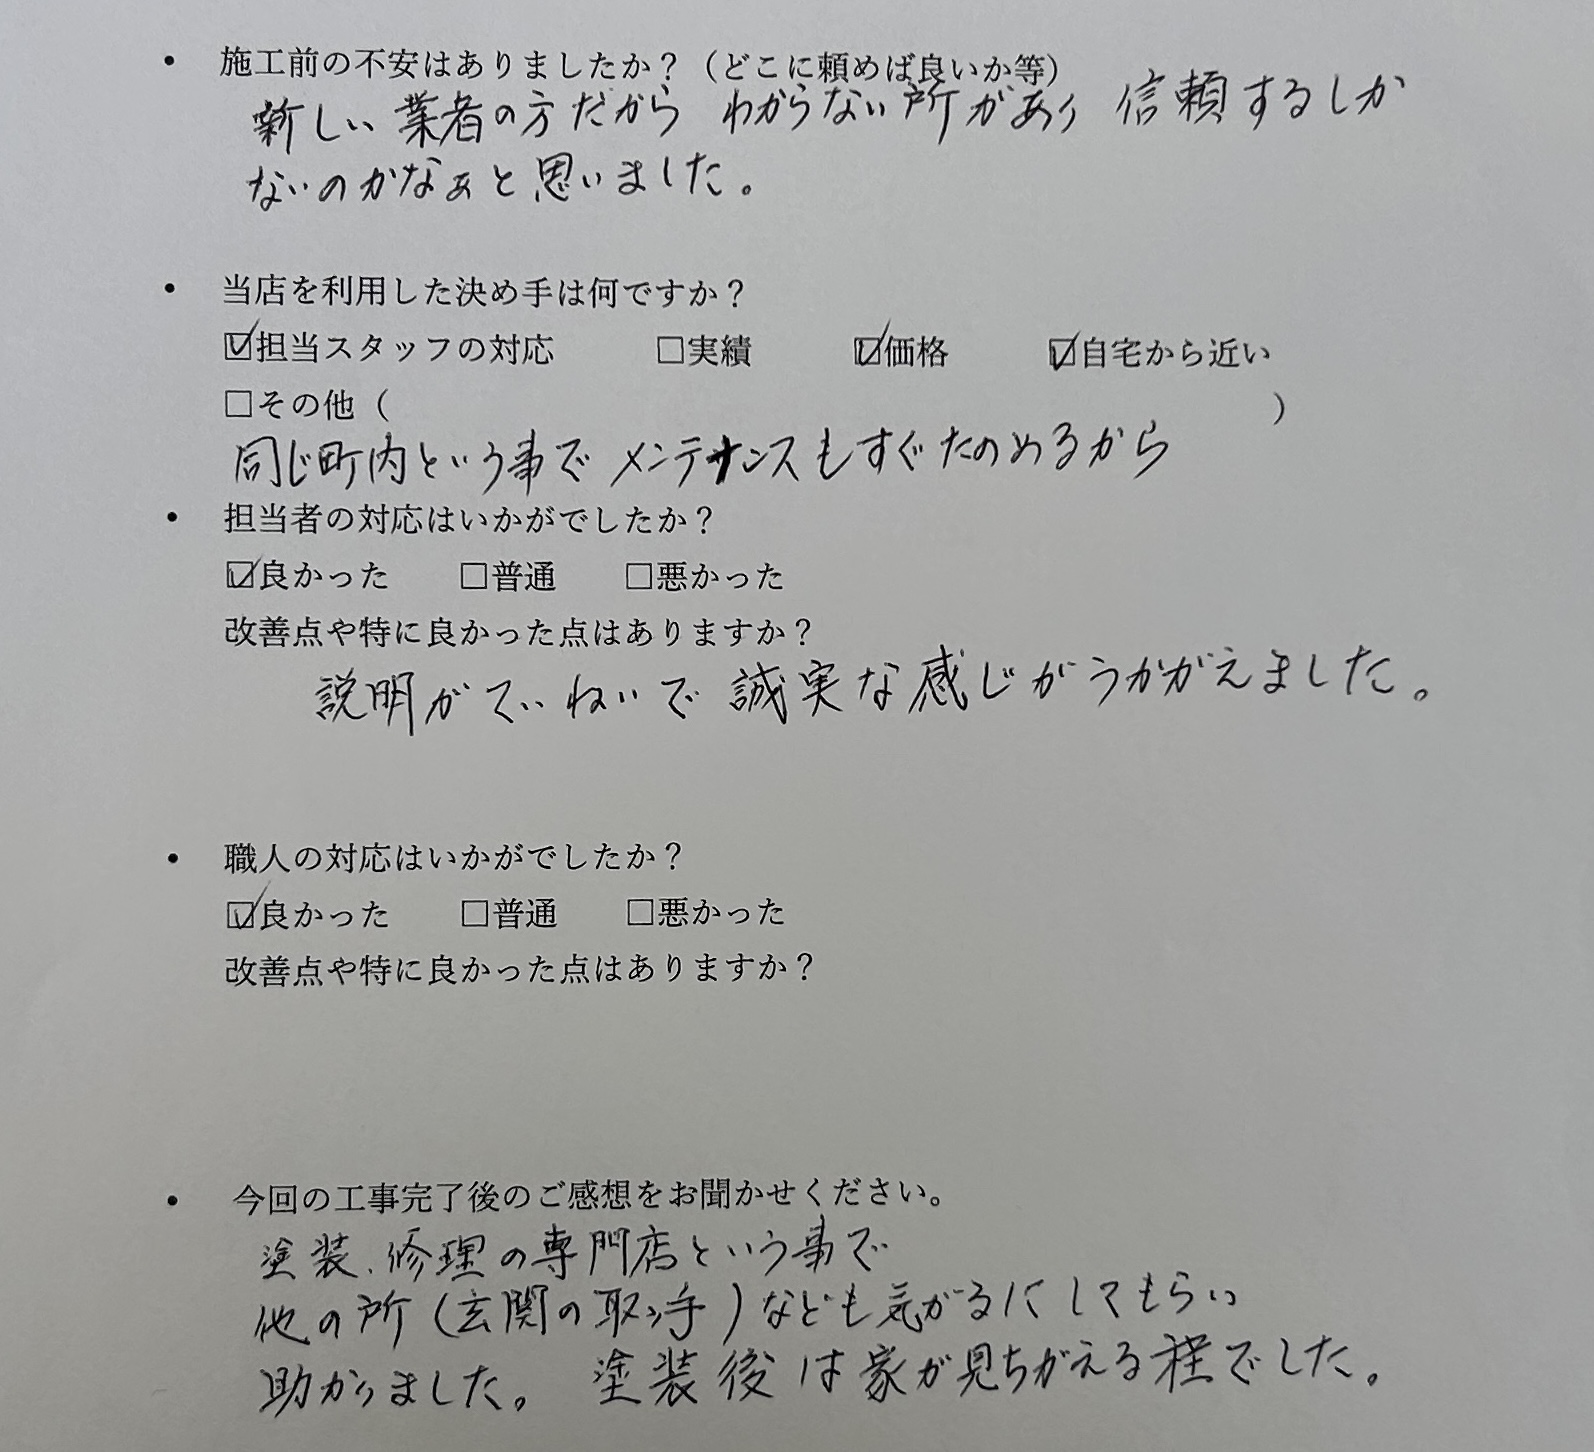 ・ 施工前の不安はありましたか？（どこに頼めば良いか等）
新しい業者の方だから わからない所があり 信頼するしか
ないのかなぁと思いました。
・ 当店を利用した決め手は何ですか？
☑担当スタッフの対応 □実績 ☑価格 ☑自宅から近い
□その他（ ）
同じ町内という事で メンテナンスもすぐたのめるから
・ 担当者の対応はいかがでしたか？
☑良かった □普通 □悪かった
改善点や特に良かった点はありますか？
説明がていねいで 誠実な感じがうかがえました。
・ 職人の対応はいかがでしたか？
☑良かった □普通 □悪かった
改善点や特に良かった点はありますか？
・ 今回の工事完了後のご感想をお聞かせください。
塗装、修理の専門店という事で
他の所（玄関の取っ手）なども気がるにしてもらい
助かりました。 塗装後は家が見ちがえる程でした。